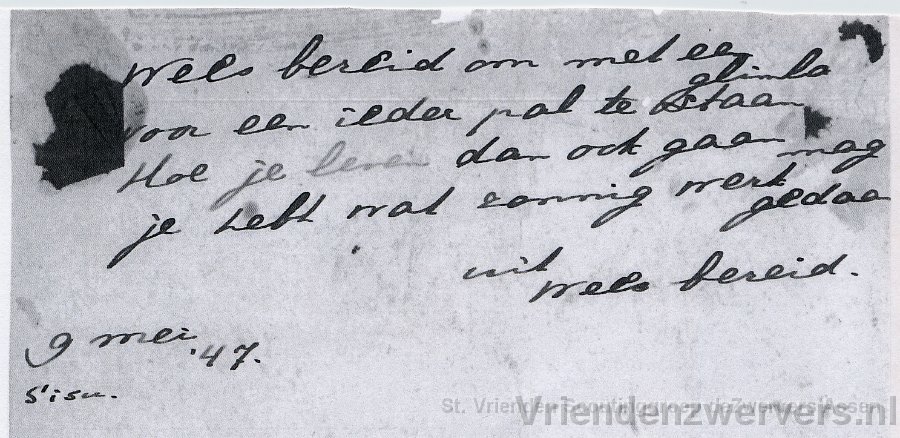 Wees bereid om met een glimla
voor een ieder pal te staan
Hoe je leven dan ook gaan mag
je hebt wat zonnig werk gedaan
uit Wees bereid.
9 mei '47.
S'isu.
St. Vrienden Scoutinggroep deZwervers Assen
Vriendenzwervers.nl